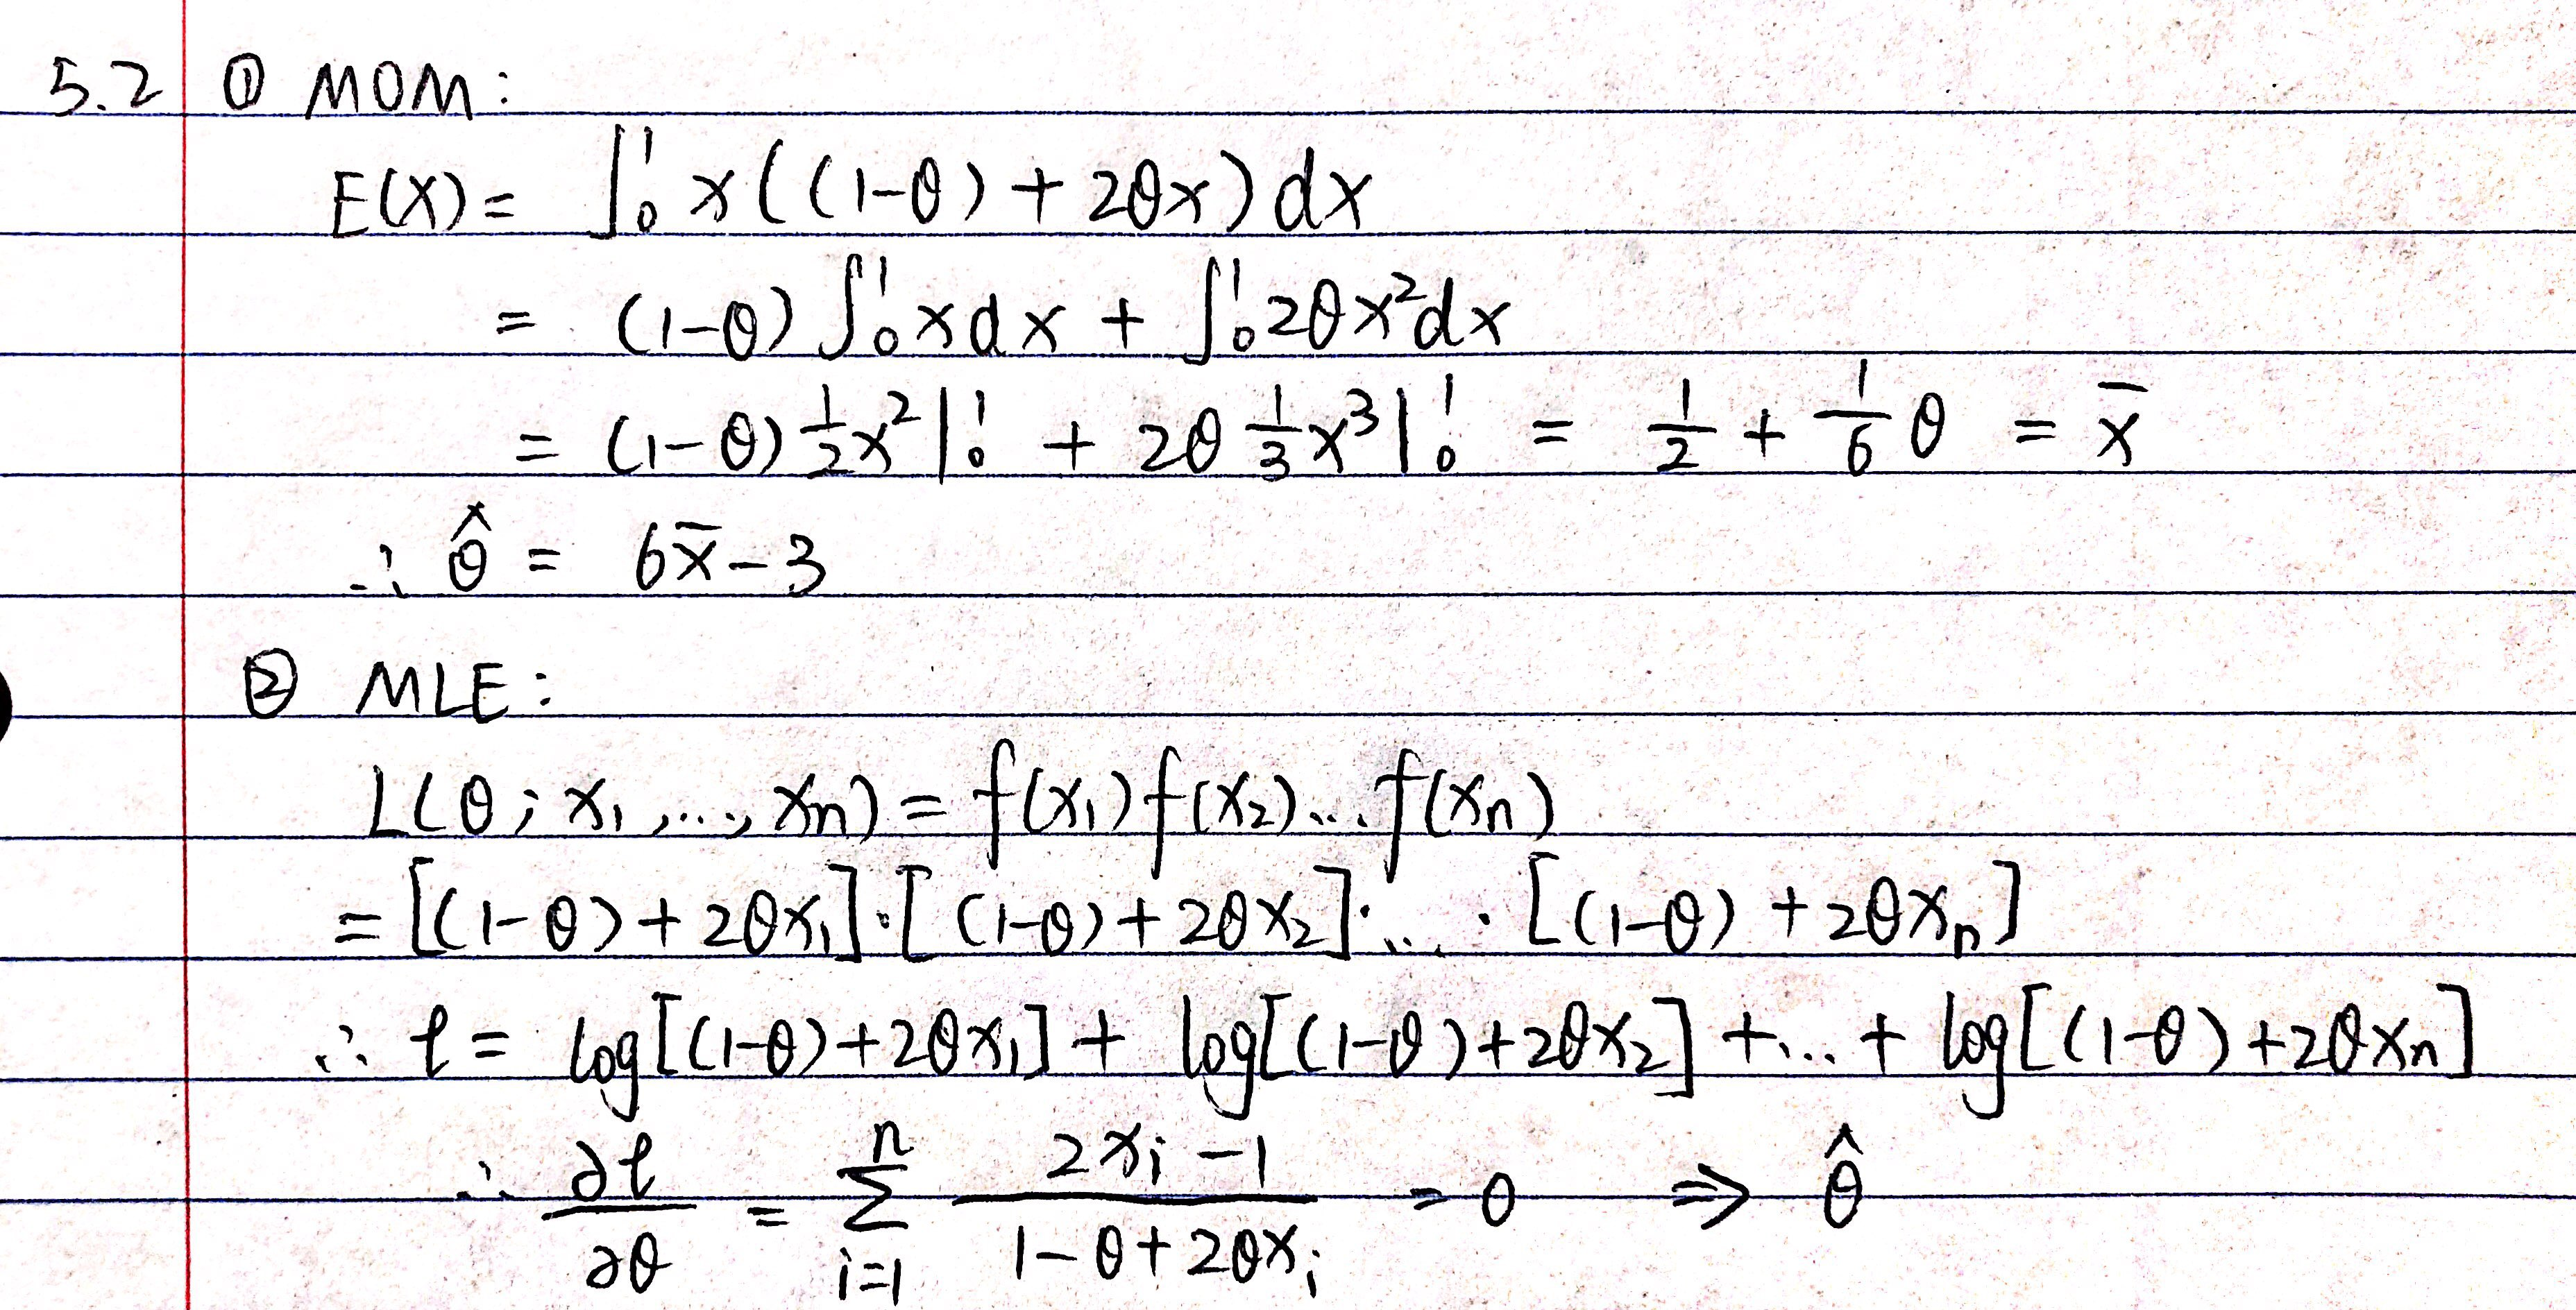 5.2 ① MOM:
E(X) = ∫₀¹ x((1-θ) + 2θx) dx
= (1-θ) ∫₀¹ x dx + ∫₀¹ 2θx² dx
= (1-θ) ½x² |₀¹ + 2θ ⅓x³ |₀¹ = ½ + ⅙ θ = x̄
∴ θ̂ = 6x̄ - 3
② MLE:
L(θ; x₁, ..., xₙ) = f(x₁) f(x₂) ... f(xₙ)
= [(1-θ) + 2θx₁]·[(1-θ) + 2θx₂]· ... ·[(1-θ) + 2θxₙ]
∴ ℓ = log[(1-θ)+2θx₁] + log[(1-θ)+2θx₂] + ... + log[(1-θ)+2θxₙ]
∴ ∂ℓ/∂θ = Σᵢ₌₁ⁿ (2xᵢ - 1)/(1-θ+2θxᵢ) = 0 ⇒ θ̂